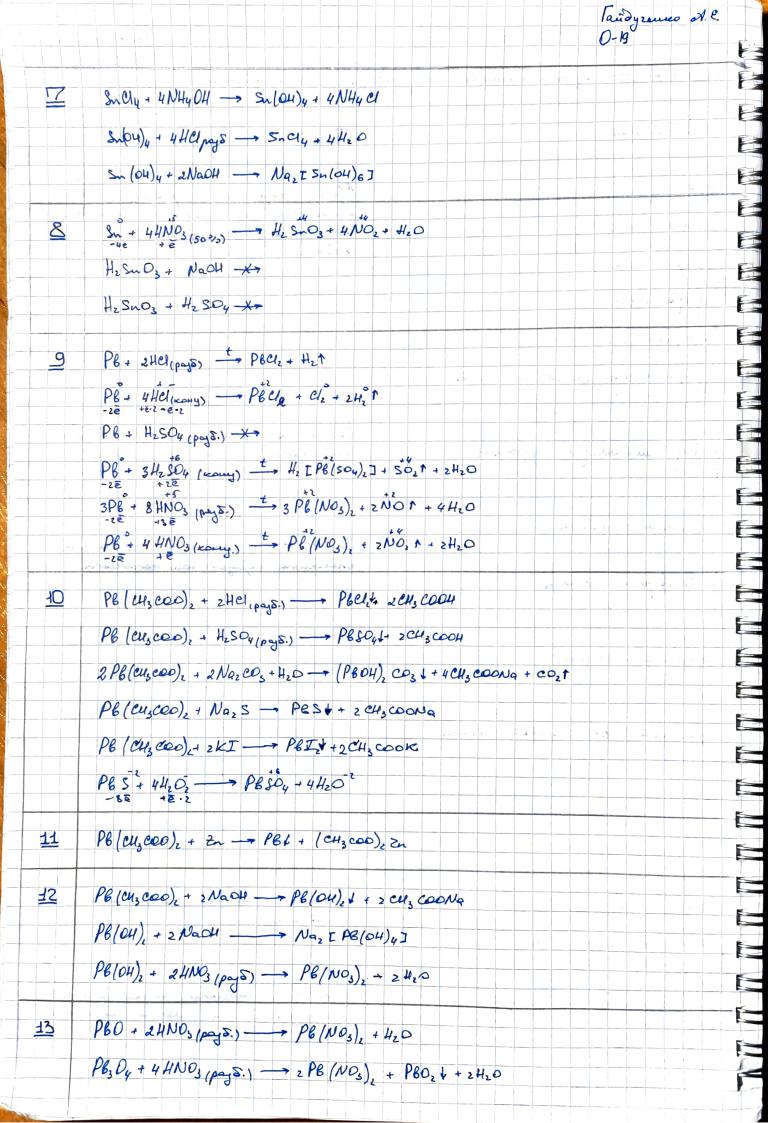 Гайдученко А.Е.
О-19
7 SnCl₄ + 4NH₄OH → Sn(OH)₄ + 4NH₄Cl
Sn(OH)₄ + 4HCl разб → SnCl₄ + 4H₂O
Sn(OH)₄ + 2NaOH → Na₂[Sn(OH)₆]
8 Sn⁰ + 4HN⁺⁵O₃ (50%) → H₂Sn⁺⁴O₃ + 4N⁺⁴O₂ + H₂O
-4ē +ē
H₂SnO₃ + NaOH -×→
H₂SnO₃ + H₂SO₄ -×→
9 Pb + 2HCl (разб) –t→ PbCl₂ + H₂↑
Pb⁰ + 4H⁺Cl⁻ (конц) → Pb⁺²Cl₂ + Cl₂⁰ + 2H₂⁰↑
-2ē +ē·2 -ē·2
Pb + H₂SO₄ (разб.) -×→
Pb⁰ + 3H₂S⁺⁶O₄ (конц) –t→ H₂[Pb⁺²(SO₄)₂] + S⁺⁴O₂↑ + 2H₂O
-2ē +2ē
3Pb⁰ + 8HN⁺⁵O₃ (разб.) –t→ 3Pb⁺²(NO₃)₂ + 2N⁺²O↑ + 4H₂O
-2ē +3ē
Pb⁰ + 4HNO₃ (конц.) –t→ Pb⁺²(NO₃)₂ + 2N⁺⁴O₂↑ + 2H₂O
-2ē +ē
10 Pb(CH₃COO)₂ + 2HCl (разб.) → PbCl₂↓ 2CH₃COOH
Pb(CH₃COO)₂ + H₂SO₄ (разб.) → PbSO₄↓ + 2CH₃COOH
2Pb(CH₃COO)₂ + 2Na₂CO₃ + H₂O → (PbOH)₂CO₃↓ + 4CH₃COONa + CO₂↑
Pb(CH₃COO)₂ + Na₂S → PbS↓ + 2CH₃COONa
Pb(CH₃COO)₂ + 2KI → PbI₂↓ + 2CH₃COOK
PbS⁻² + 4H₂O₂⁻ → PbS⁺⁶O₄ + 4H₂O⁻²
-8ē +ē·2
11 Pb(CH₃COO)₂ + Zn → Pb↓ + (CH₃COO)₂Zn
12 Pb(CH₃COO)₂ + 2NaOH → Pb(OH)₂↓ + 2CH₃COONa
Pb(OH)₂ + 2NaOH → Na₂[Pb(OH)₄]
Pb(OH)₂ + 2HNO₃ (разб) → Pb(NO₃)₂ + 2H₂O
13 PbO + 2HNO₃ (разб.) → Pb(NO₃)₂ + H₂O
Pb₃O₄ + 4HNO₃ (разб.) → 2Pb(NO₃)₂ + PbO₂↓ + 2H₂O